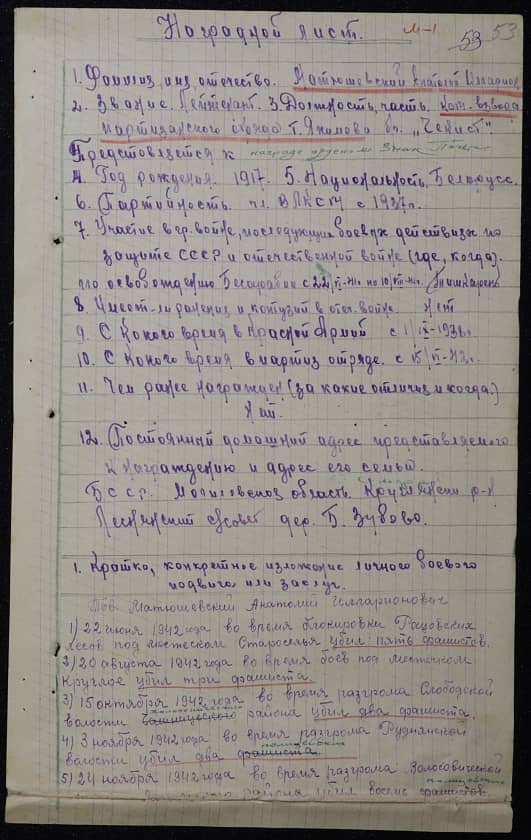 Наградной лист.
М-1 53 53
1. Фамилия, имя, отчество. Матюшевский Анатолий
2. Звание. Лейтенант. 3. Должность, часть. Ком. взвода
партизанского отряда т. Якимова бр. "Чекист"
Представляется к награде орденом Знак
4. Год рождения. 1917. 5. Национальность. Белорусс.
6. Партийность. чл. ВЛКСМ с 1937 г.
7. Участие в гр. войне, последующих боевых действиях по
защите СССР и отечественной войне (где, когда).
по освобождению Бесарабии с 22
8. Имеет ли ранения и контузии в отеч. войне. Нет
9. С какого время в Красной Армии с 1936 г.
10. С какого время в партиз отряде. с 15
11. Чем ранее награжден (за какие отличия и когда.)
Нет.
12. Постоянный домашний адрес представляемого
к награждению и адрес его семьи.
БССР. Могилевская область. Круглянский р-н
Леснянский с/совет дер. Б. Зубово.
1. Кратко, конкретное изложение личного боевого
подвига или заслуг.
Тов. Матюшевский Анатолий Илларионович
1) 22 июня 1942 года во время блокировки
лесов под местечком Староселья убил: пять фашистов.
2) 20 августа 1942 года во время боев под местечком
Круглое убил три фашиста.
3) 15 октября 1942 года во время разгрома Слободской
волости района убил два фашиста.
4) 3 ноября 1942 года во время разгрома Руднянской
волости убил два фашиста.
5) 24 ноября 1942 года во время разгрома
района убил восемь фашистов.